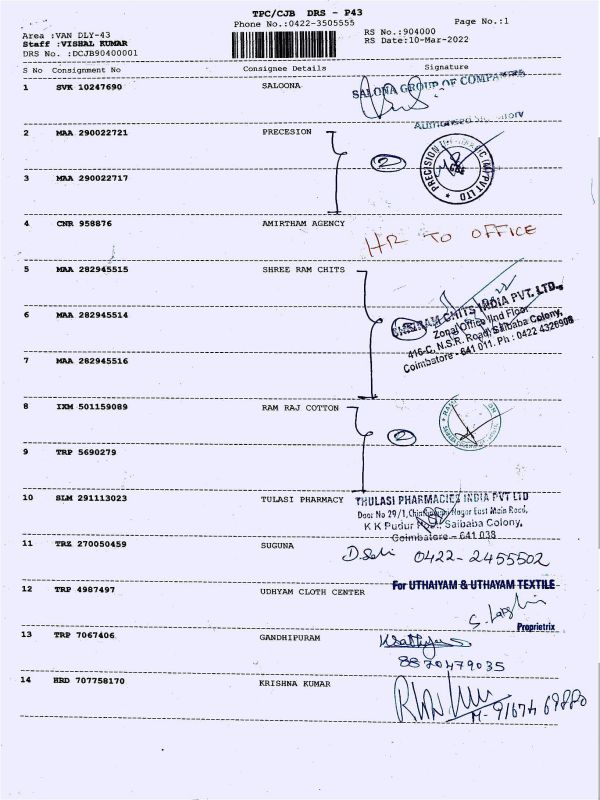 TPC/CJB DRS - P43
Phone No.:0422-3505555
Page No.:1
Area :VAN DLY-43
RS No.:904000
Staff :VISHAL KUMAR
RS Date:10-Mar-2022
DRS No. :DCJB90400001
S No Consignment No Consignee Details Signature
1 SVK 10247690 SALOONA
SALONA GROUP OF COMPANIES
2 MAA 290022721 PRECESION
2
PRECISION (M) PVT LTD
3 MAA 290022717
4 CNR 958876 AMIRTHAM AGENCY
HR TO OFFICE
5 MAA 282945515 SHREE RAM CHITS
SHRIRAM CHITS INDIA PVT. LTD.
Zonal Office IInd Floor
6 MAA 282945514
416-C, N.S.R. Road, Saibaba Colony,
Coimbatore - 641 011. Ph : 0422 4326908
7 MAA 282945516
8 IXM 501159089 RAM RAJ COTTON
2
9 TRP 5690279
10 SLM 291113023 TULASI PHARMACY
THULASI PHARMACIEZ INDIA PVT LTD
Door No 29/1, Nagar East Main Road,
K K Pudur Saibaba Colony,
Coimbatore - 641 038
11 TRZ 270050459 SUGUNA
0422-2455502
12 TRP 4987497 UDHYAM CLOTH CENTER
For UTHAIYAM & UTHAYAM TEXTILE
Proprietrix
13 TRP 7067406 GANDHIPURAM
8870479035
14 HRD 707758170 KRISHNA KUMAR
M-9167469880